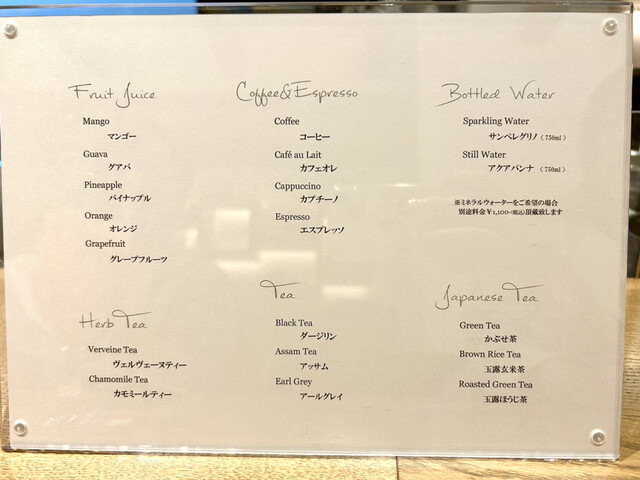 Fruit Juice
Mango
マンゴー
Guava
グアバ
Pineapple
パイナップル
Orange
オレンジ
Grapefruit
グレープフルーツ
Coffee&Espresso
Coffee
コーヒー
Café au Lait
カフェオレ
Cappuccino
カプチーノ
Espresso
エスプレッソ
Bottled Water
Sparkling Water
サンペレグリノ（750ml）
Still Water
アクアパンナ（750ml）
※ミネラルウォーターをご希望の場合
別途料金￥1,100-(税込)頂戴致します
Herb Tea
Verveine Tea
ヴェルヴェーヌティー
Chamomile Tea
カモミールティー
Tea
Black Tea
ダージリン
Assam Tea
アッサム
Earl Grey
アールグレイ
Japanese Tea
Green Tea
かぶせ茶
Brown Rice Tea
玉露玄米茶
Roasted Green Tea
玉露ほうじ茶